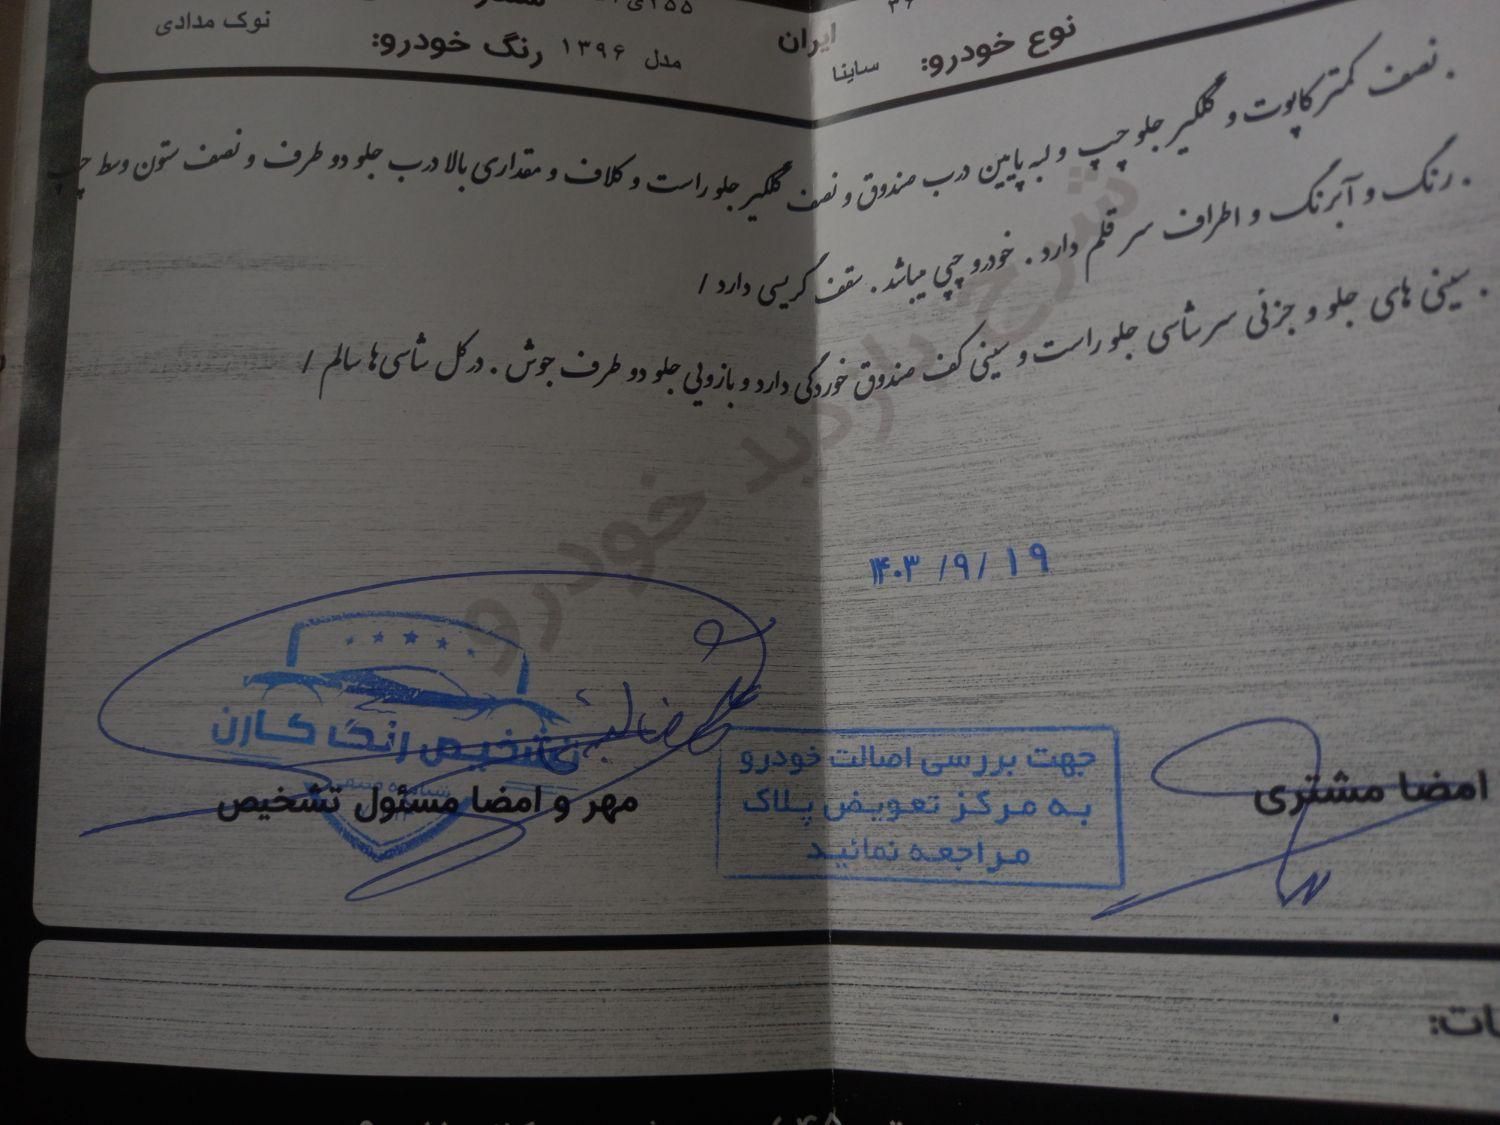 نوع خودرو: ساینا ایران مدل ۱۳۹۶ رنگ خودرو: نوک مدادی
. نصف کمتر کاپوت و گلگیر جلو چپ و لبه پایین درب صندوق و نصف گلگیر جلو راست و کلاف و مقداری بالا درب جلو دو طرف و نصف ستون وسط چپ
. رنگ و آبرنگ و اطراف سر قلم دارد . خودرو چپی میباشد . سقف گریسی دارد /
. سینی های جلو و جزئی سر شاسی جلو راست و سینی کف صندوق خوردگی دارد و بازویی جلو دو طرف جوش . در کل شاسی ها سالم /
شرح بازدید خودرو
۱۴۰۳ /۹/ ۱۹
تشخیص رنگ کارن
جهت بررسی اصالت خودرو
به مرکز تعویض پلاک
مراجعه نمائید
امضا مشتری
مهر و امضا مسئول تشخیص